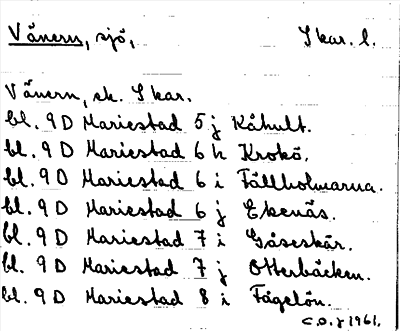 Vänern, sjö, Skar. l.
Vänern, sk. Skar.
bl. 9D Mariestad 5 j Kåhult.
bl. 9D Mariestad 6 h Krokö.
bl. 9D Mariestad 6 i Fällholmarna.
bl. 9D Mariestad 6 j Ekenäs.
bl. 9D Mariestad 7 i Gåseskär.
bl. 9D Mariestad 7 j Otterbäcken.
bl. 9D Mariestad 8 i Fågelön.
C.O. 1961.